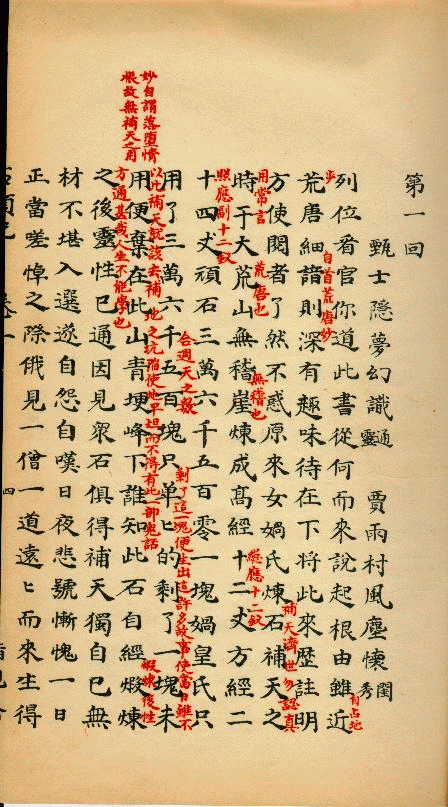 第一回
甄士隱夢幻識通靈　賈雨村風塵懷閨秀
自占地
步
列位看官你道此書從何而來說起根由雖近
自首荒唐妙
荒唐細諳則深有趣味待在下將此來歷註明
補天濟世勿認真
用常言
方使閱者了然不惑原來女媧氏煉石補天之
荒唐也
無稽也
總應十二釵
時于大荒山無稽崖煉成高經十二丈方經二
照應副十二釵
十四丈頑石三萬六千五百零一塊媧皇氏只
合週天之數
剩了這一塊便生出這許多故事使當日雖不
以此補天就該去補地之坑陷使地平坦而不得有此一部鬼話
用了三萬六千五百塊只单ヒ的剩了一塊未
煅煉後性
方通甚哉人生不能學也
妙自謂落堕情
根故無補天之用
用便棄在此山青埂峰下誰知此石自經煅煉
之後靈性已通因見眾石俱得補天獨自己無
材不堪入選遂自怨自嘆日夜悲號慚愧一日
正當嗟悼之際俄見一僧一道遠ヒ而來生得
四